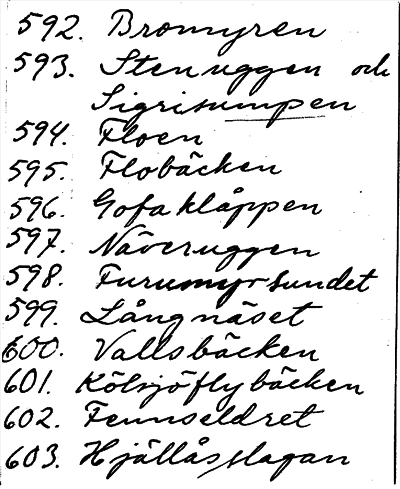 592. Bromyren
593. Stenuggen och
Sigrisumpen
594. Floen
595. Flobäcken
596. Gofakläppen
597. Näveruggen
598. Furumyrsundet
599. Långnäset
600. Vallsbäcken
601. Kölsjöflybäcken
602. Fennseldret
603. Hjällåsslagan